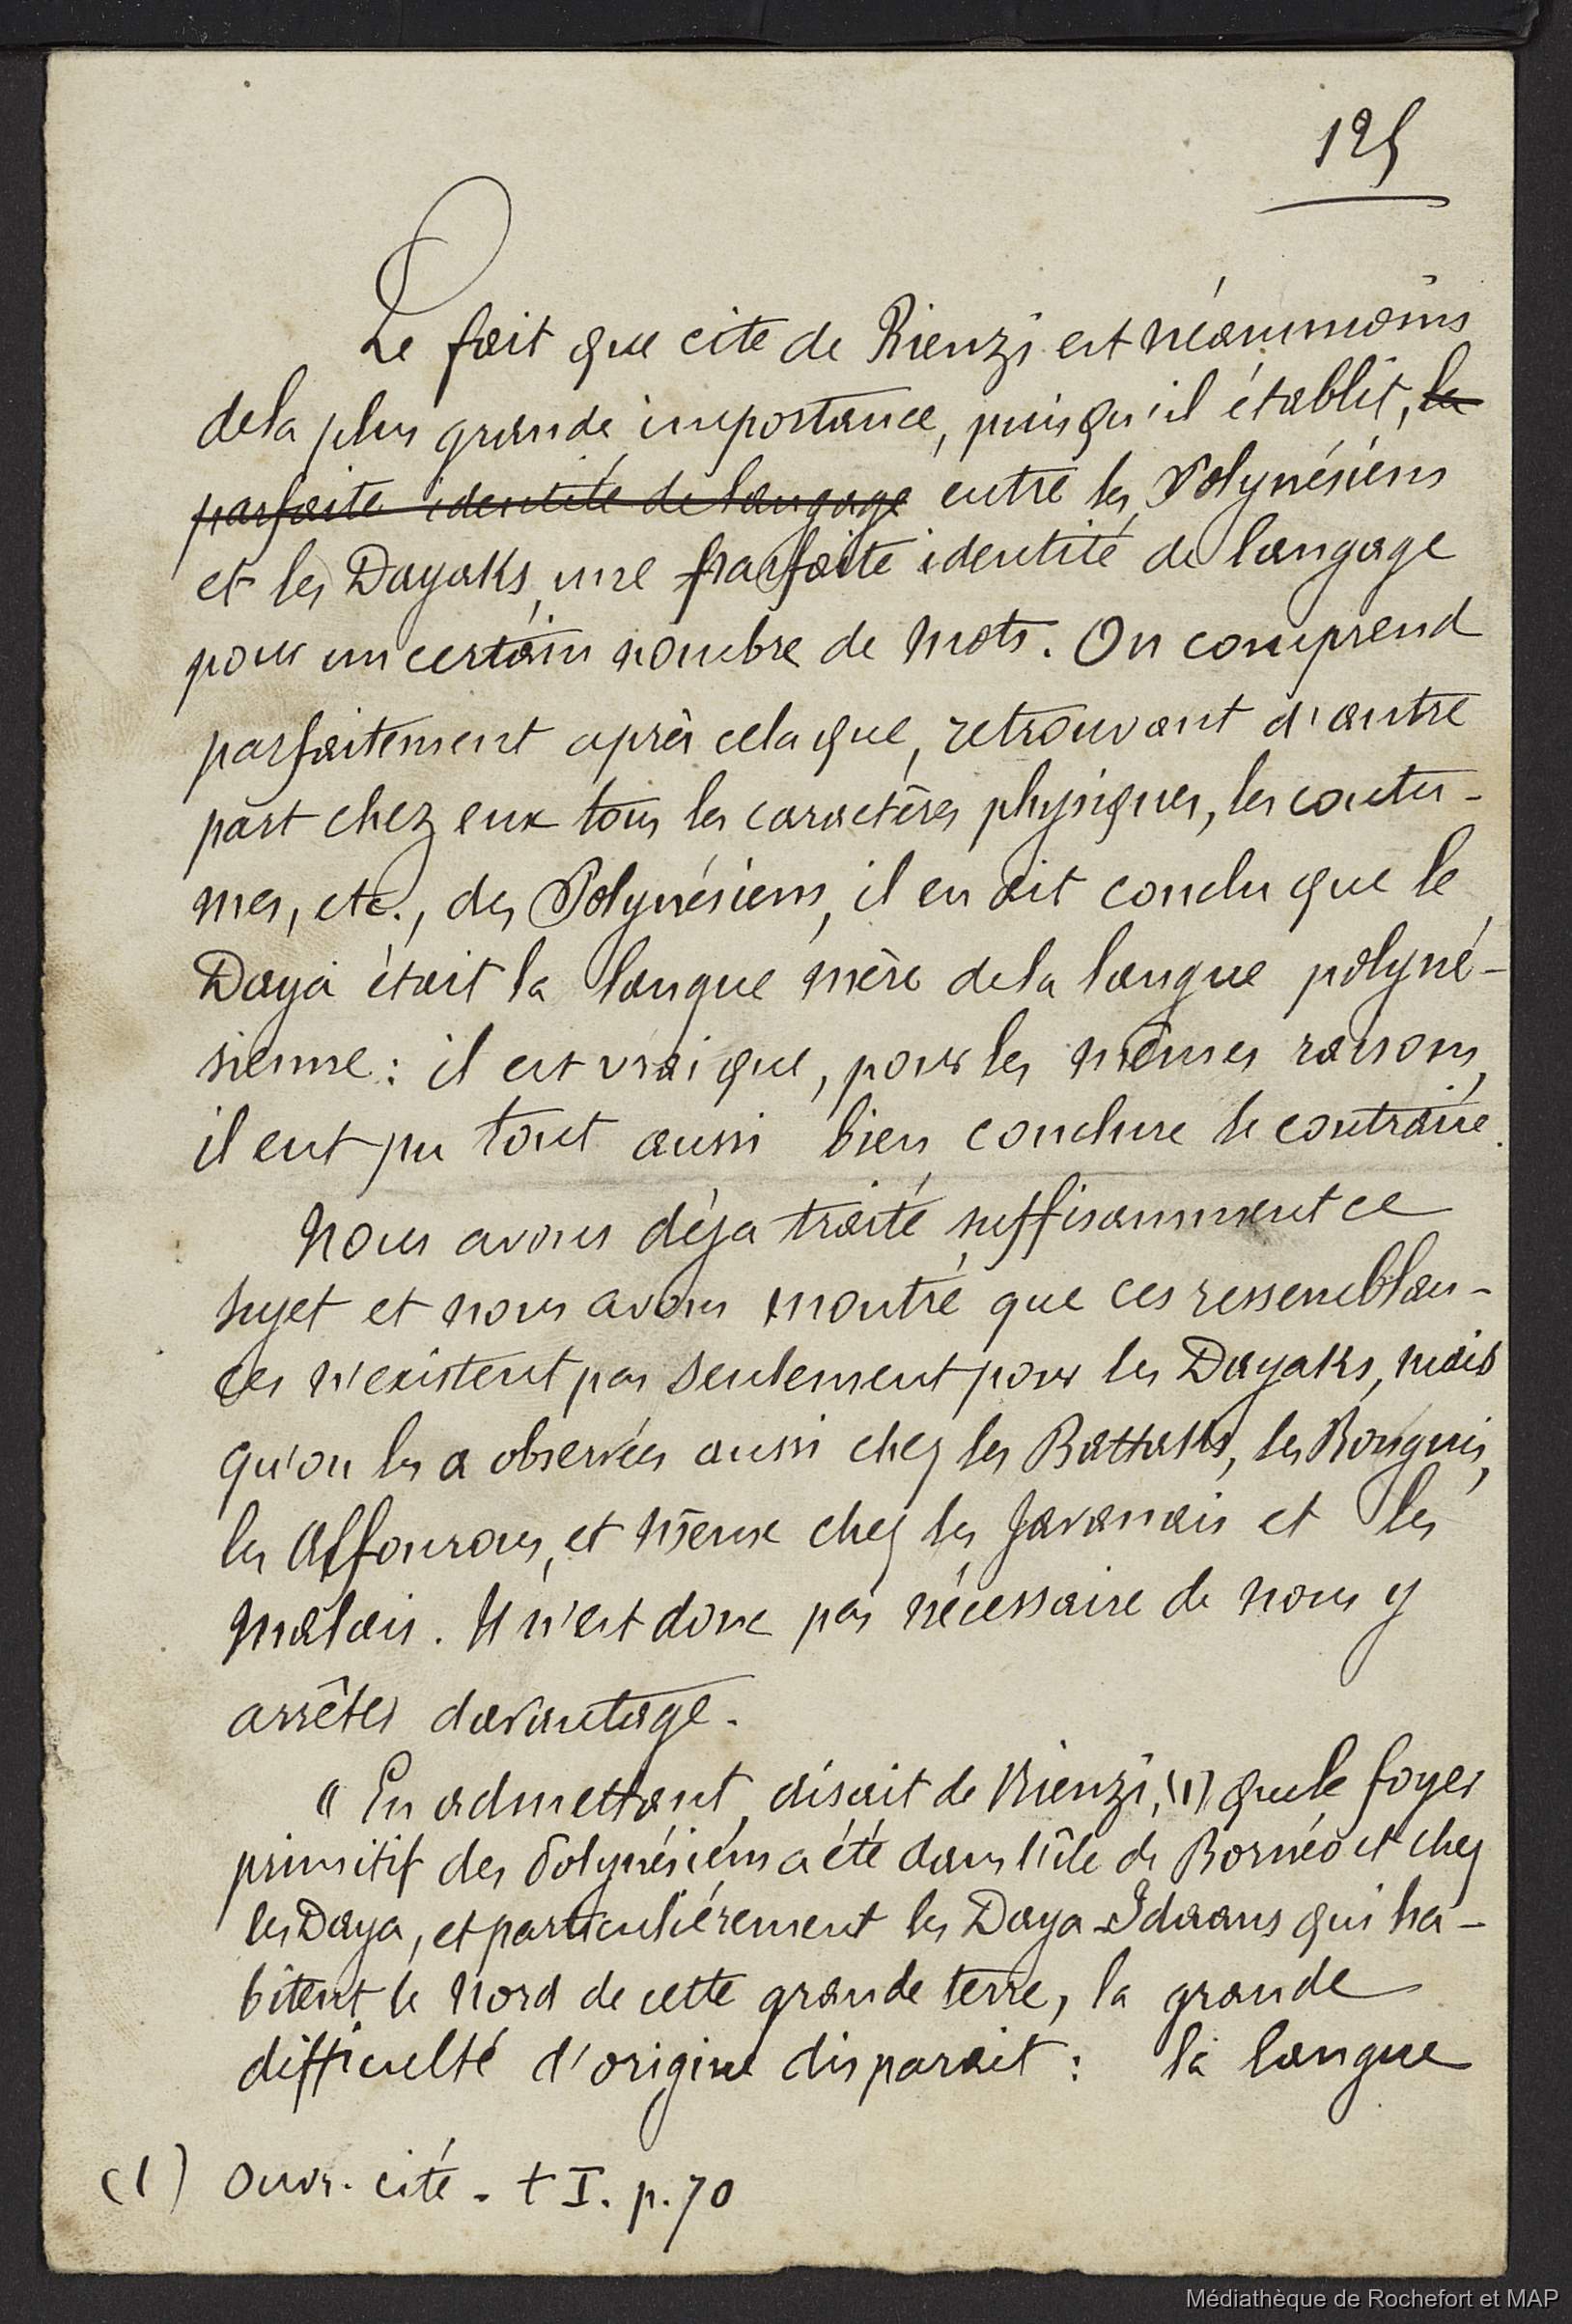 125
Le fait que cite de Rienzi est néanmoins
de la plus grande importance, puisqu'il établit, la
parfaite identité de langage entre les Polynésiens
et les Dayaks, une parfaite identité de langage
pour un certain nombre de mots. On comprend
parfaitement après cela que, retrouvant d'autre
part chez eux tous les caractères physiques, les coutu-
mes, etc., des Polynésiens, il en ait conclu que le
Daya était la langue mère de la langue polyné-
sienne : il est vrai que, pour les mêmes raisons,
il eut pu tout aussi bien conclure le contraire.
Nous avons déja traité suffisamment ce
sujet et nous avons montré que ces ressemblan-
ces n'existent pas seulement pour les Dayaks, mais
qu'on les a observées aussi chez les Battaks, les Bouguis,
les Alfourous, et même chez les Javanais et les
Malais. Il n'est donc pas nécessaire de nous y
arrêter davantage.
" En admettant, disait de Rienzi, (1) que le foyer
primitif des Polynésiens a été dans l'île de Bornéo et chez
les Daya, et particulièrement les Daya-Idaans qui ha-
bitent le nord de cette grande terre, la grande
difficulté d'origine disparait : la langue
(1) Ouvr. cité - t I. p. 70
Médiathèque de Rochefort et MAP